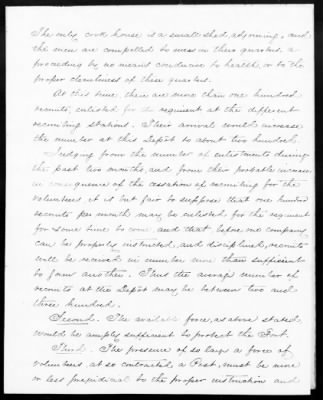 The only cook house is a small shed, adjoining, and
the men are compelled to mess in their quarters, a
proceeding by no means conducive to health, or to the
proper cleanliness of these quarters.
At this time, there are more than one hundred
recruits, enlisted for the regiment at the different
recruiting stations. Their arrival would increase
the number at this Depôt to about two hundred.
Judging from the number of enlistments during
the past two months, and from their probable increase
in consequence of the cessation of recruiting for the
volunteers, it is but fair to suppose that one hundred
recruits per month may be enlisted for the regiment
for some time to come and that before one company
can be properly instructed, and disciplined, recruits
will be received in number more than sufficient
to form another. Thus the average number of
recruits at the Depôt may be between two and
three hundred.
Second. The available force, as above stated,
would be amply sufficient to protect the Fort.
Third. The presence of so large a force of
volunteers, at so contracted, a Post, must be more
or less prejudicial to the proper instruction and